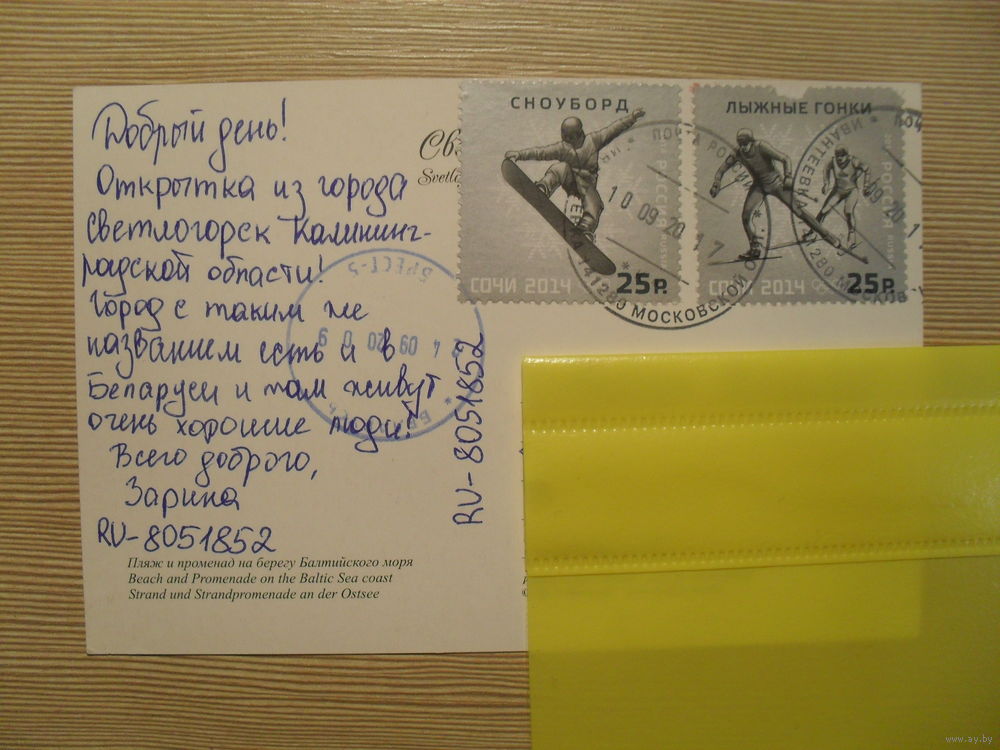 Добрый день!
Открытка из города
Светлогорск Калининг-
радской области!
Город с таким же
названием есть и в
Беларуси и там живут
очень хорошие люди!
Всего доброго,
Зарина
RU-8051852
Пляж и променад на берегу Балтийского моря
Beach and Promenade on the Baltic Sea coast
Strand und Strandpromenade an der Ostsee
RU-8051852
Св
Svetlo
СНОУБОРД
СОЧИ 2014
25р.
ЛЫЖНЫЕ ГОНКИ
СОЧИ 2014
25р.
ПОЧТА РОССИИ
10 09 20 17
141280 МОСКОВСКОЙ ОБЛ.
ИВАНТЕЕВКА
141280 МОСКОВ
БРЕСТ-2
4 09 20 0 9
www.ay.by